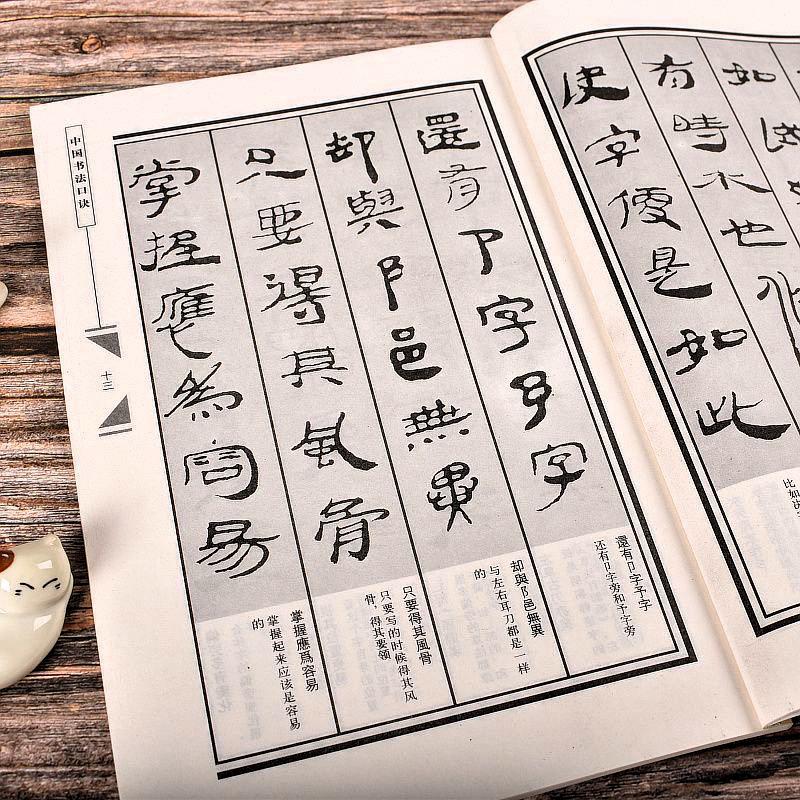 如
有時水也
使字便是如此
比如决
還有卩字予字
却與阝邑無異
只要得其風骨
掌握應為容易
還有卩字予字
还有卩字旁和予字旁
却與阝邑無異
与左右耳刀都是一样
的
只要得其風骨
只要写的时候得其风
骨，得其要领
掌握應爲容易
掌握起来应该是容易
的
中国书法口诀
十三